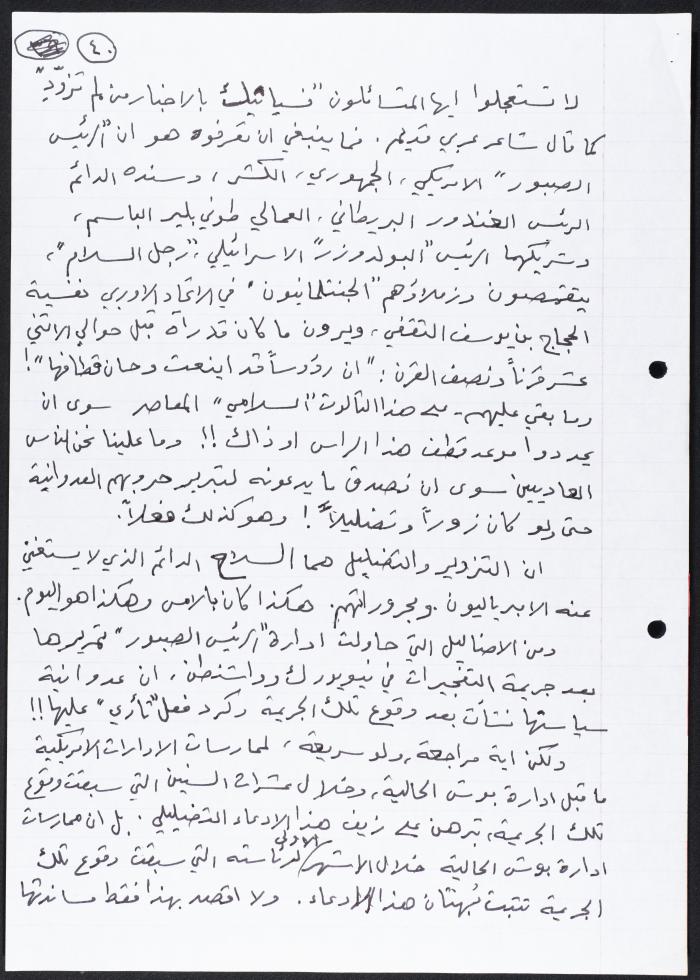 ٤٠
لا تستعجلوا ايها المتسائلون "فسيأتيك بالاخبار من لم تزوّدِ"
كما قال شاعر عربي قديم. فما ينبغي ان تعرفوه هو ان "الرئيس
الصبور" الامريكي، الجمهوري، الكشر، وسنده الدائم
الرئس الغندور البريطاني، العمالي طوني بلير الباسم،
وشريكهما الرئيس "البولدوزر" الاسرائيلي، "رجل السلام"،
يتقمصون وزملاؤهم "الجنتلمانيون" في الاتحاد الاوربي نفسية
الحجاج بن يوسف الثقفي، ويرون ما كان قد رآه قبل حوالي الاثني
عشر قرناً ونصف القرن: "ان رؤوساً قد اينعت وحان قطافها"!
وما بقي عليهم - على هذا الثالوث "السلامي" المعاصر سوى ان
يحددوا موعد قطف هذا الراس او ذاك!! وما علينا نحن الناس
العاديين سوى ان نصدق ما يدعونه لتبرير حروبهم العدوانية
حتى ولو كان زوراً وتضليلاً! وهو كذلك فعلاً.
ان التزوير والتضليل هما السلاح الدائم الذي لا يستغني
عنه الامبرياليون ومجروراتهم. هكذا كان بالامس وهكذا هو اليوم.
ومن الاضاليل التي حاولت ادارة "الرئيس الصبور" تمريرها
بعد جريمة التفجيرات في نيويورك وواشنطن، ان عدوانية
سياستها نشأت بعد وقوع تلك الجريمة وكرد فعل "ثأري" عليها!!
ولكن اية مراجعة، ولو سريعة، لممارسات الادارات الامريكية
ما قبل ادارة بوش الحالية، وخلال عشرات السنين التي سبقت وقوع
تلك الجريمة، تبرهن على زيف هذا الادعاء التضليلي. بل ان ممارسات
ادارة بوش الحالية خلال الاشهر الاولى لرئاسته التي سبقت وقوع تلك
الجريمة تثبت بُهتان هذا الادعاء. ولا اقصد بهذا فقط مساندتها